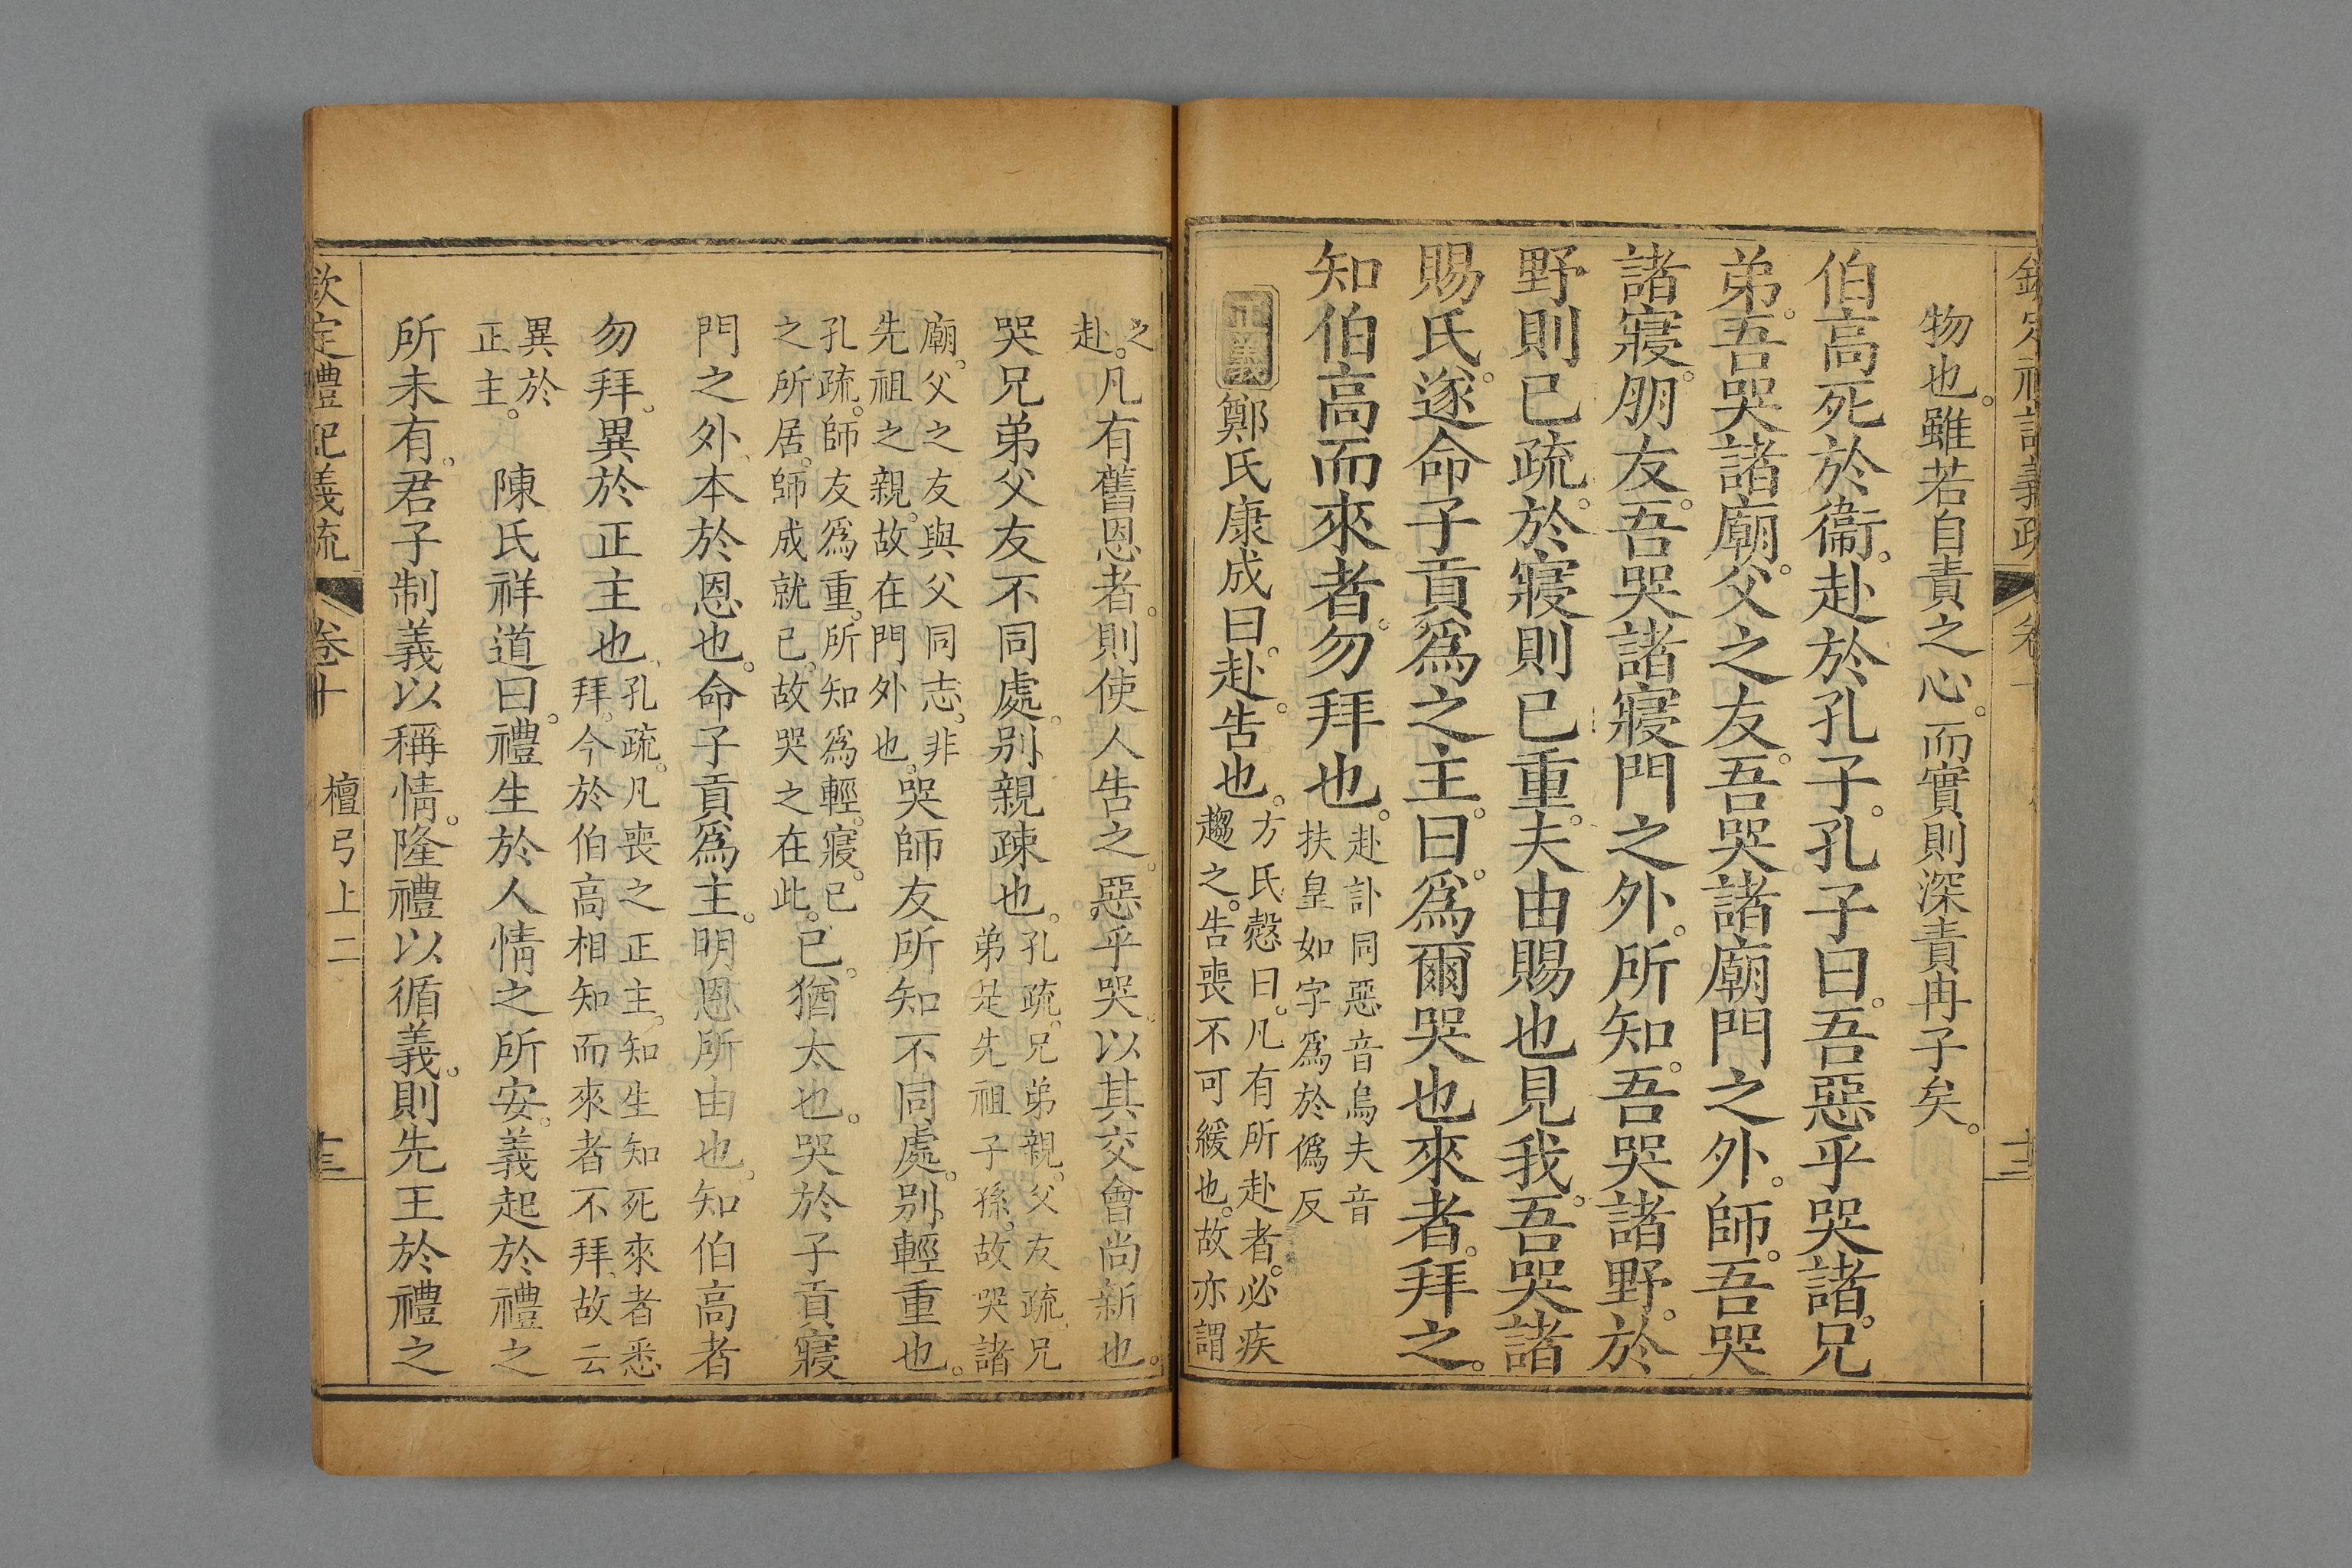 物也。雖若自責之心。而實則深責冉子矣。
伯高死於衞。赴於孔子。孔子曰。吾惡乎哭諸。兄
弟。吾哭諸廟。父之友。吾哭諸廟門之外。師。吾哭
諸寢。朋友。吾哭諸寢門之外。所知。吾哭諸野。於
野則已疏。於寢則已重。夫由賜也見我。吾哭諸
賜氏。遂命子貢爲之主。曰。爲爾哭也來者。拜之。
知伯高而來者。勿拜也。
赴訃同惡音烏夫音
扶皇如字爲於僞反
正義
鄭氏康成曰。赴。告也。
方氏慤曰。凡有所赴者。必疾
趨之。告喪不可緩也。故亦謂
之
赴。
凡有舊恩者。則使人告之。惡乎哭。以其交會尚新也。
哭兄弟父友不同處。别親疎也。
孔疏。兄弟親。父友疏。兄
弟是先祖子孫。故哭諸
廟。父之友與父同志。非
先祖之親。故在門外也。
哭師友所知不同處。别輕重也。
孔疏。師友爲重。所知爲輕。寢。已
之所居。師成就已。故哭之在此。
已。猶太也。哭於子貢寢
門之外、本於恩也。命子貢爲主。明恩所由也。知伯高者
勿拜。異於正主也、
孔疏。凡喪之正主。知生知死來者悉
拜。今於伯高相知而來者不拜、故云
異於
正主。
陳氏祥道曰。禮生於人情之所安。義起於禮之
所未有。君子制義以稱情。隆禮以循義。則先王於禮之
欽定禮記義疏
卷十
檀弓上二
十三